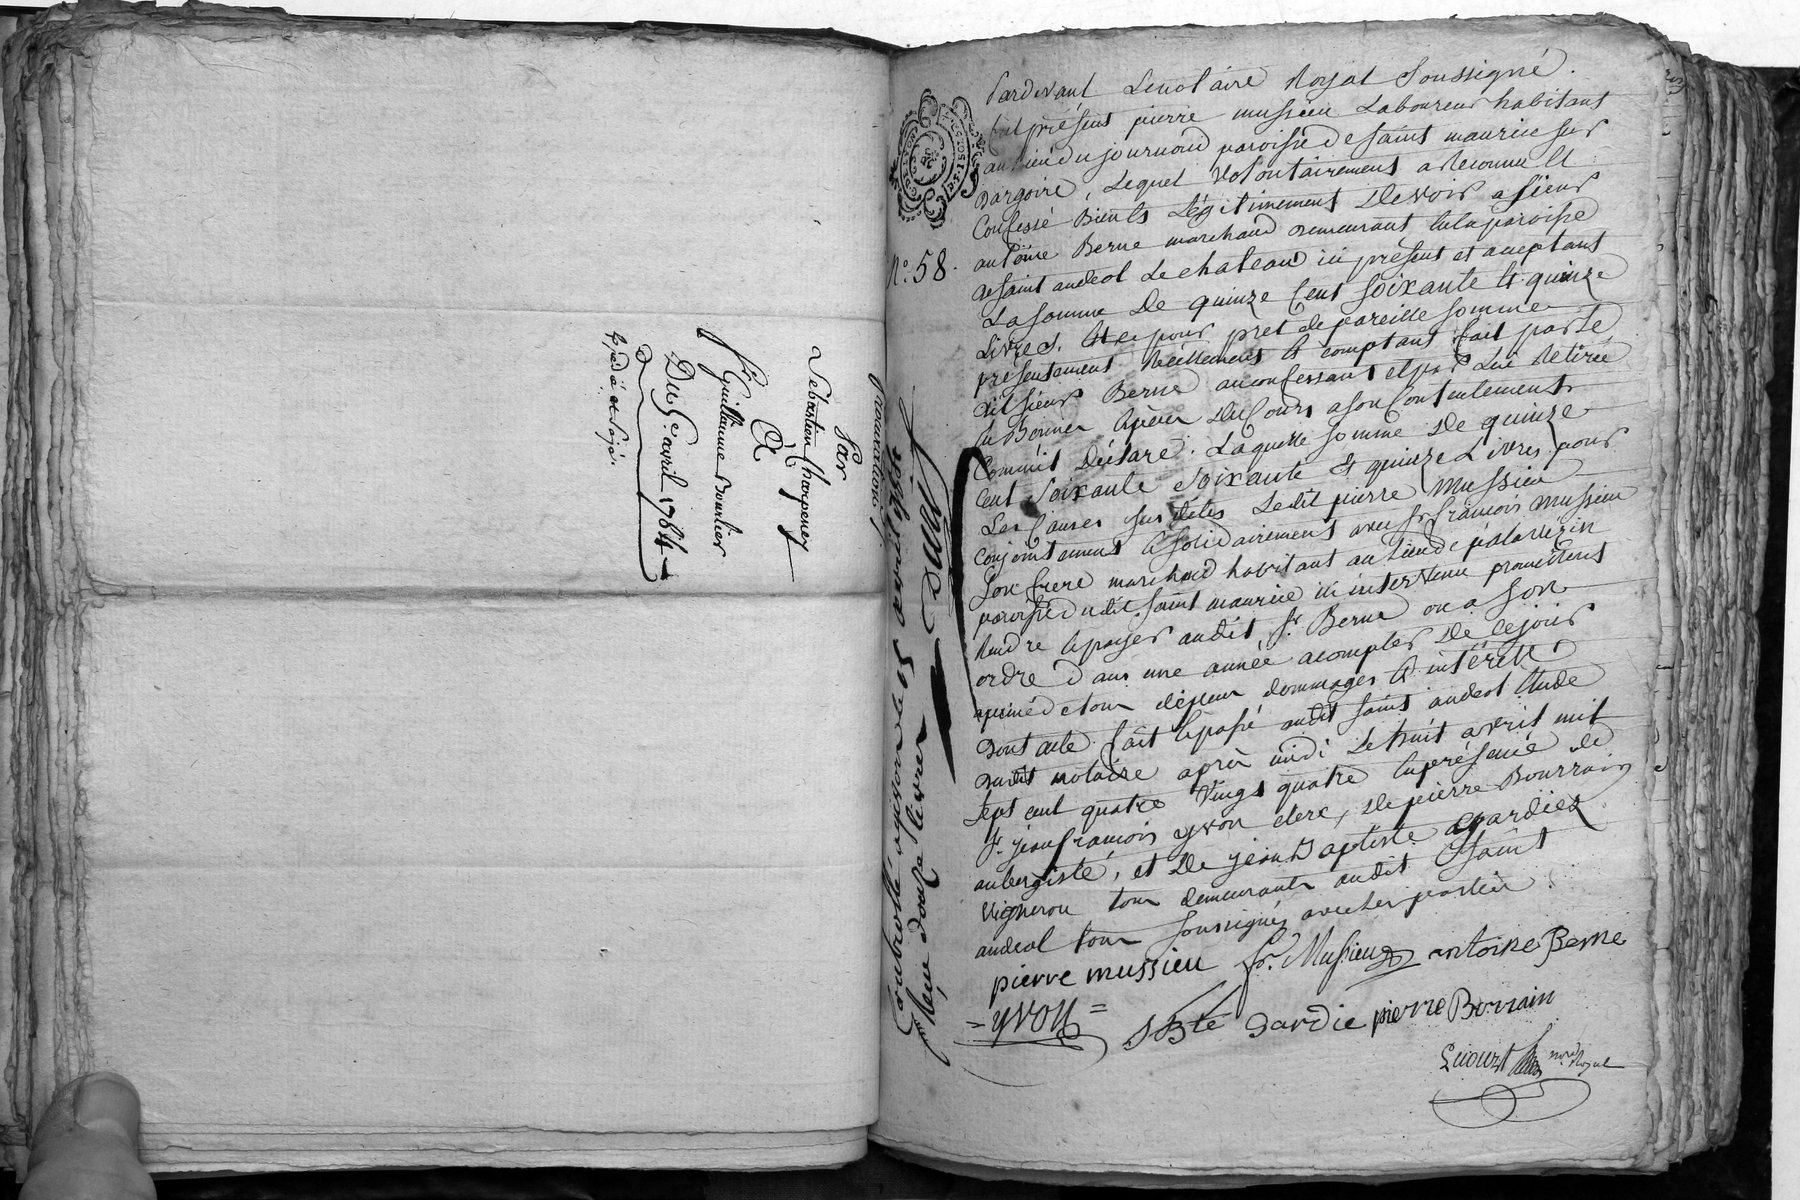 Par
Sebastien Charpenay
A
Sr Guillaume Bourlier
Du 5e avril 1784
Expedié et Sigé.
No. 58.
G. DE LYON
Pardevant Lenotaire Royal Soussigné.
fut présent pierre mussieu Laboureur habitant
au lieu du journoud paroisse de saint maurice sur
dargoire, Lequel volontairement a Reconnu Et
Confessé Bien Et Légitimement Devoir a sieur
antoine Berne marchand demeurant en la paroisse
de saint andeol Le chateau ici présent et acceptant
La somme De quinze Cent soixante Et quinze
Livres. Et ce pour prêt de pareille somme
présentement Réellement Et comptant fait par le
dit sieur Berne au confessant et par Lui Retirée
En Bonnes Espèces du Cours a son Contentement
Comm'il Déclare. Laquelle somme De quinze
Cent soixante soixante Et quinze Livres pour
Les Causes sus dites Ledit pierre Mussieu
conjointement Et solidairement avec sr françois Mussieu
son frere marchand habitant au lieu de palaverin
paroisse dudit saint maurice ici intervenu promettent
Rendre Et payer audit Sr Berne ou a son
ordre Dans une année a compter De ce jour
a peine de tous dépens dommages Et intérêts
Dont acte fait Et passé audit saint andeol Etude
dudit notaire après midi Le huit avril mil
sept cent quatre vingt quatre En présence de
Sr jean françois yvon clerc, De pierre Bourrain
aubergiste, et De jean Baptiste Gardiez
vigneron tous demeurants audit saint
andeol tous soussignés avec les parties.
pierre mussieu fr. Mussieu antoine Berne
= yvon = J Bte Gardie pierre Borrain
nore Royal
Controllé a givors le 15 avril 1784
Reçu douze livres